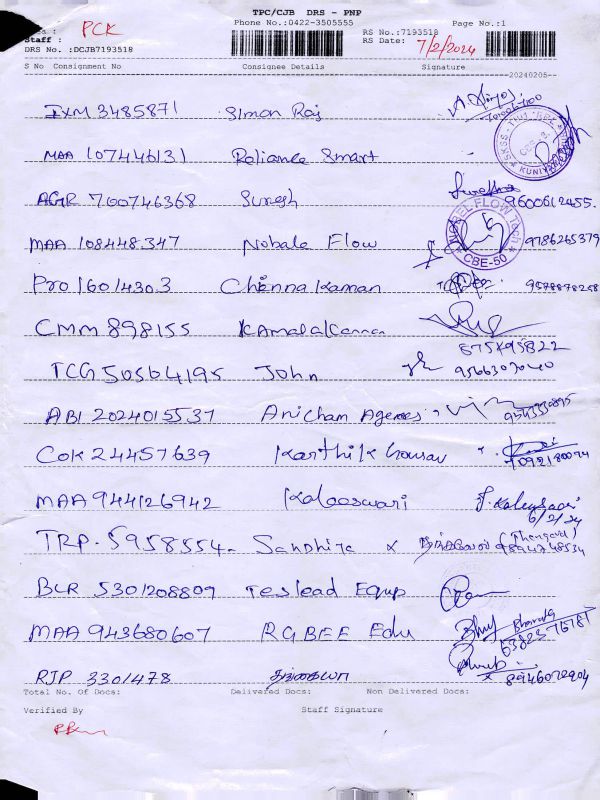 TPC/CJB DRS - PNP
Phone No.:0422-3505555 Page No.:1
Area : PCK
Staff : RS No.:7193518
DRS No. :DCJB7193518 RS Date: 7/2/2024
S No Consignment No Consignee Details Signature
20240205
IXM 3485871 Simon Raj
MAA 107446131 Reliance Smart
AGR 700746368 Suresh 9600612455.
MAA 108448347 Nobale Flow CBE-50 9786265379
Pro 16014303 Chennakaman
CMM 898155 Kamalakanna
TCG 50564195 John
ABI 2024015537 Anicham Agences
COK 24457639 Karthik
MAA 944126942 Kaleeswari
6/2/24
TRP-5958554 Sandhiya x
BLR 5301208809 Teslead Equp
MAA 943680607 RGBEE Edu Bharath
RJP 3301478 தங்கையா 8946072904
Total No. Of Docs: Delivered Docs: Non Delivered Docs:
Verified By Staff Signature